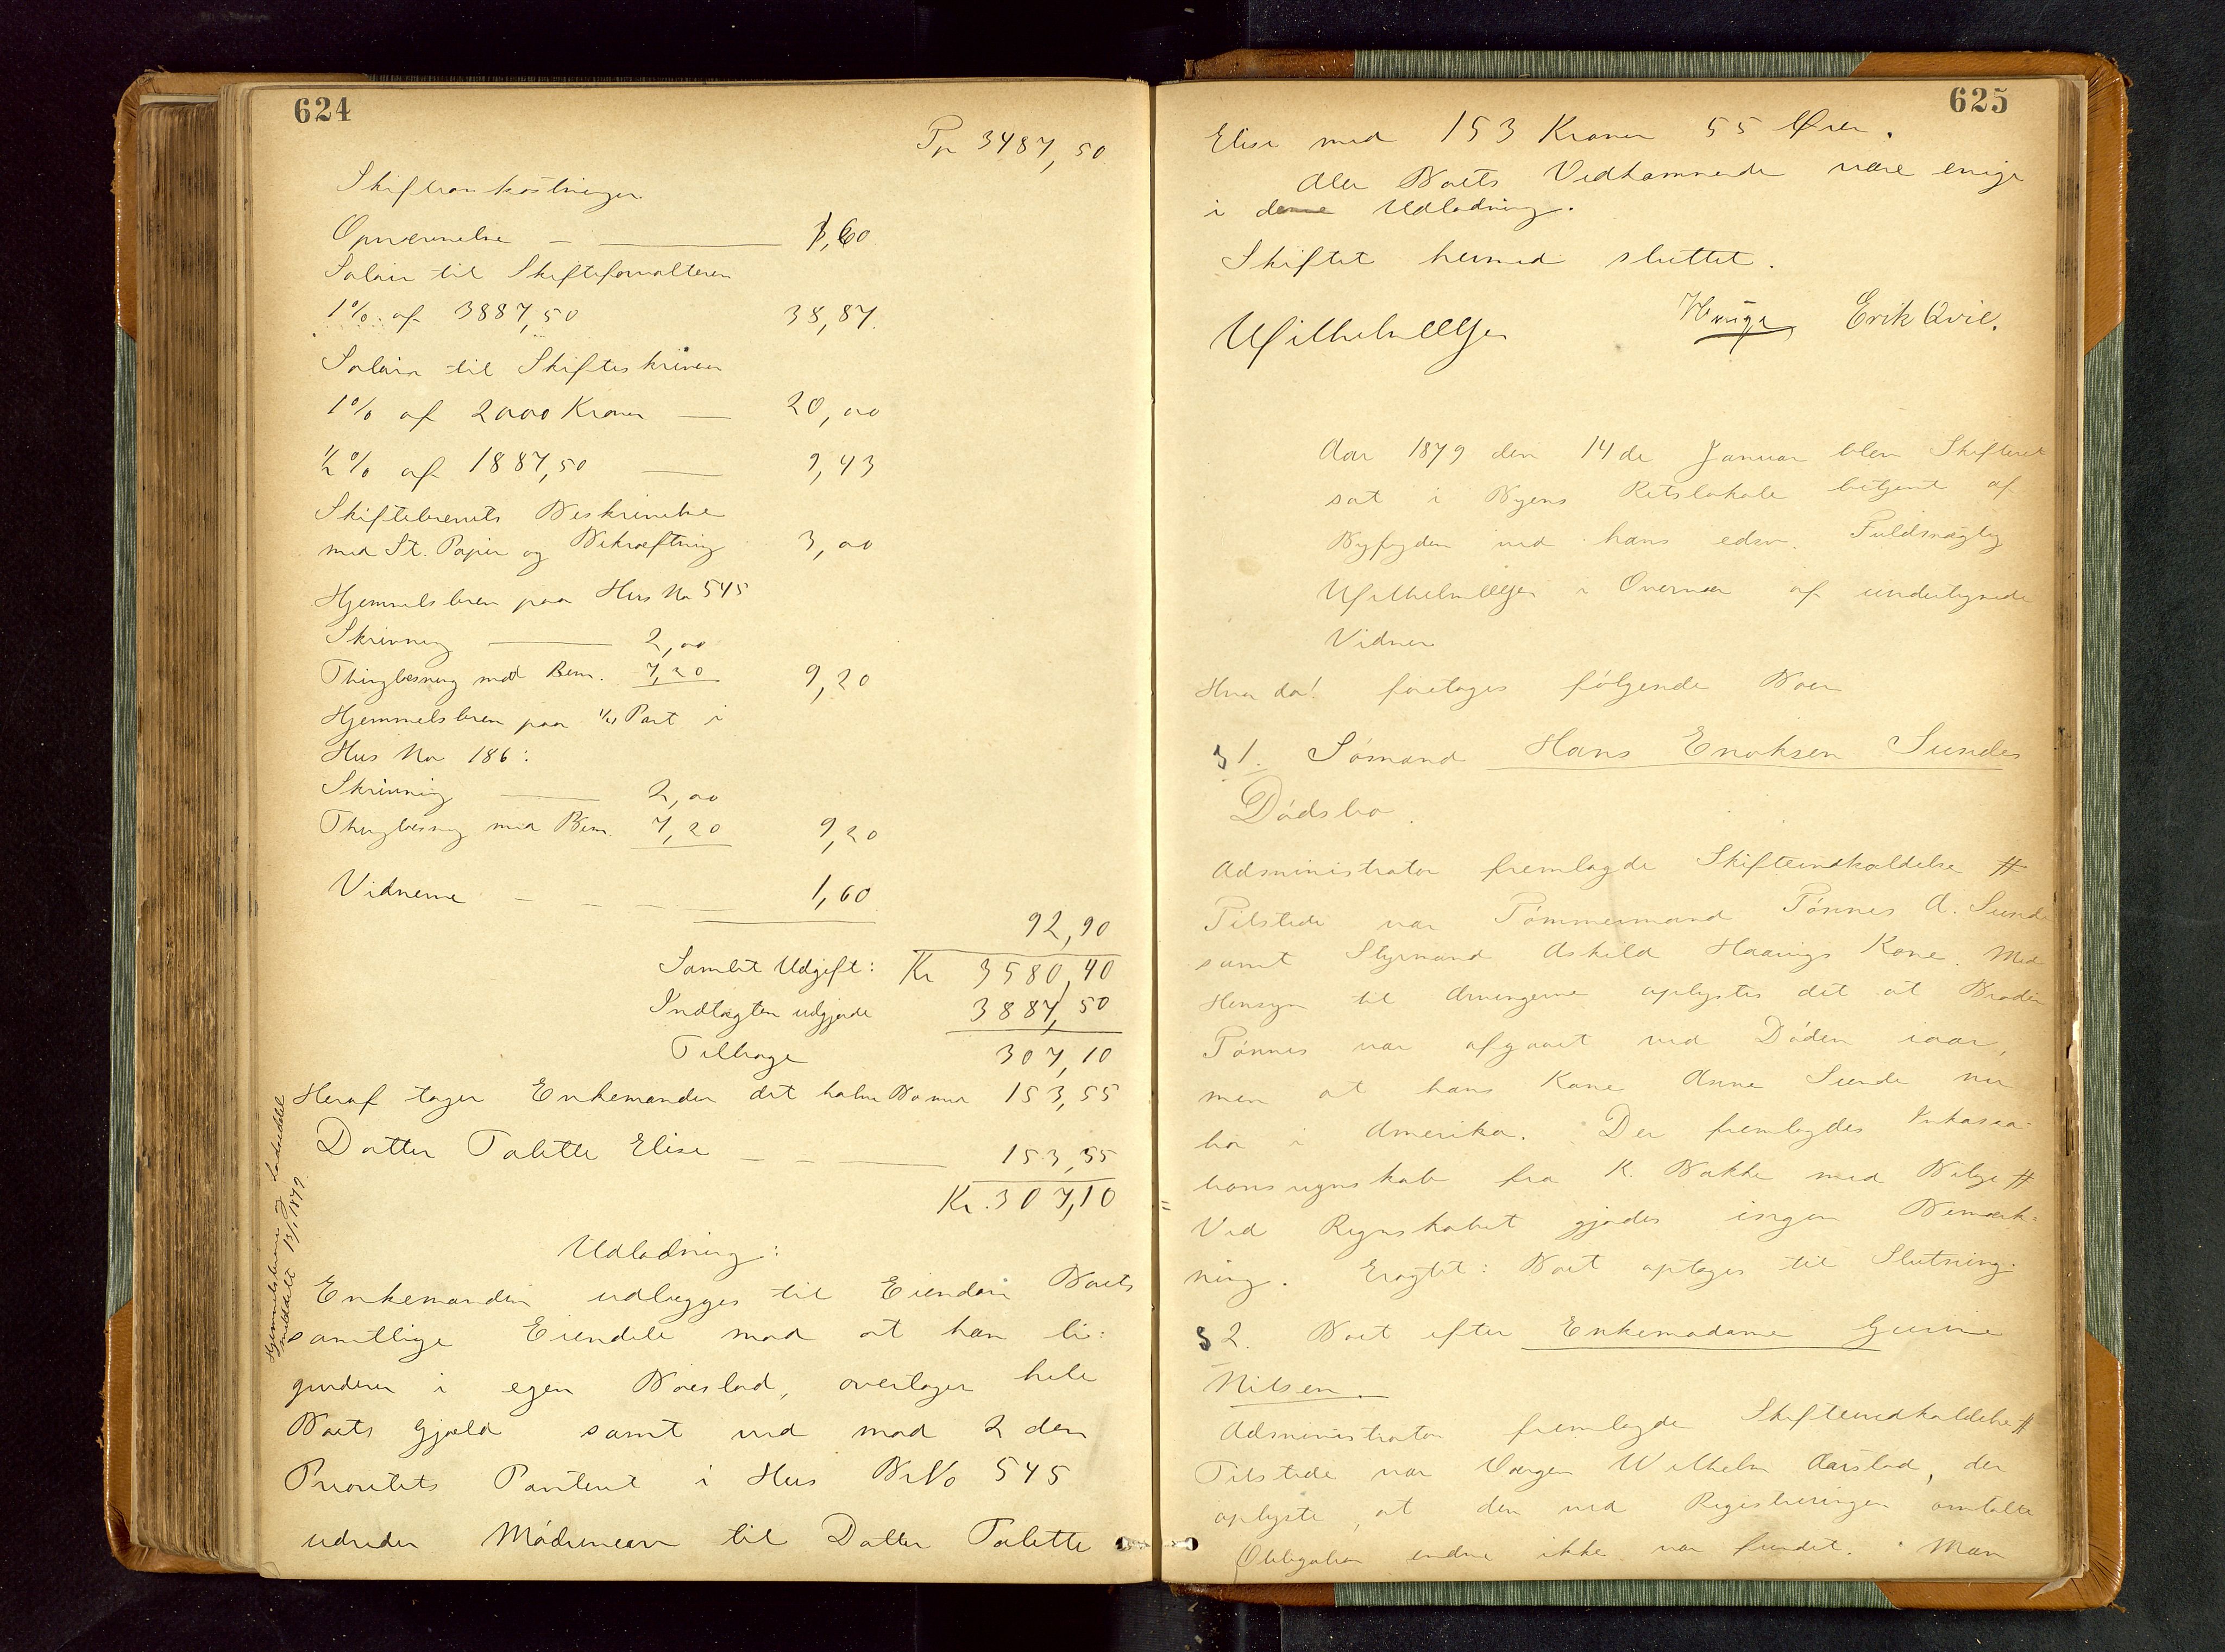 624
Tr 3487,50
Skifteomkostninger
Opnævnelse — 1,60
Salair til Skifteforvalteren
1% af 3887,50 38,87.
Salair til Skifteskriveren
1% af 2000 Kroner — 20,00
½% af 1887,50 — 9,43
Skiftebrevets Beskrivelse
med St. Papir og Bekræftning 3,00
Hjemmelsbrev paa Hus No 545
Skrivning — 2,00
Thinglæsning med Bem. 7,20 9,20
Hjemmelsbrev paa Part i
Hus No 186:
Skrivning — 2,00
Thinglæsning med Bem. 7,20 9,20
Vidnerne — 1,60
92,90
Samlet Udgift: Kr 3580,40
Indtægten udgjorde 3887,50
Tilbage 307,10
Heraf tager Enkemanden det halve Bo med 153,55
Datter Talette Elise — 153,55
Kr. 307,10
Udlodning:
Enkemanden udlægges til Eiendom Boets
samtlige Eiendele mod at han li-
qviderer i egen Boeslod, overtager hele
Boets Gjæld samt ved mod 2den
Prioritets Panteret i Hus BrNo 545
udreder Mødrenearv til Datter Talette
Hjemmelsbrevene og Lodseddel
meddelt 13/1 1879.
625
Elise med 153 Kroner 55 Ører.
Alle Boets Vedkommende vare enige
i denne Udlodning.
Skiftet hermed sluttet.
Erik Qvil.
Aar 1879 den 14de Januar blev Skifteret
sat i Byens Retslokale betjent af
Byfogden ved hans edsv. Fuldmægtig
i Overvær af undertegnede
Vidner
Hvor da! foretoges følgende Boer
§ 1. Sømand Hans Enoksen Sundes
Dødsbo.
Administrator fremlagde Skifteindkaldelse #
Tilstede var Tømmermand Tønnes A. Sunde
samt Styrmand Askild Haavigs Kone. Med
Hensyn til Arvingerne oplystes det at Broder
Tønnes var afgaaet ved Døden iaar,
men at hans Kone Anne Sunde nu
bor i Amerika. Der fremlagdes Inkassa-
tionsregnskab fra K. Bakke med Bilge #
Ved Regnskabet gjordes ingen Bemærk-
ning. Eragtet: Boet optages til Slutning.
§ 2. Boet efter Enkemadame Gurine
Nilsen.
Administrator fremlagde Skifteindkaldelse #
Tilstede var Værgen Wilhelm Aarstad, der
oplyste, at den ved Registreringen omtalte
Obligation endnu ikke var fundet. Man